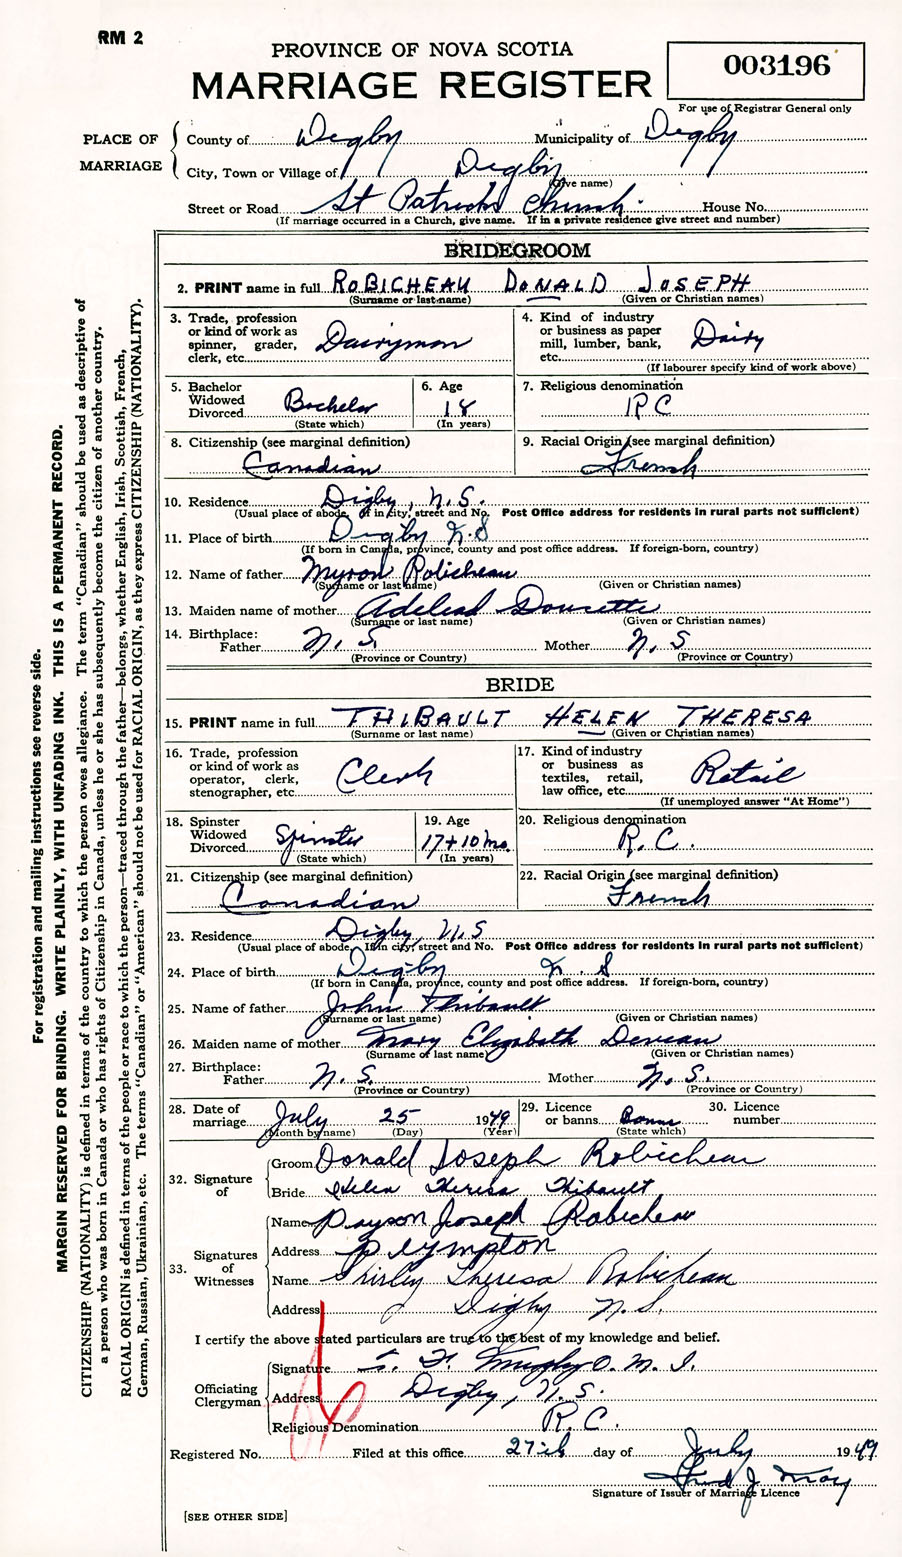 RM 2
PROVINCE OF NOVA SCOTIA
MARRIAGE REGISTER
003196
For use of Registrar General only
PLACE OF MARRIAGE
County of Digby Municipality of Digby
City, Town or Village of Digby
(Give name)
Street or Road St Patricks Church. House No.
(If marriage occurred in a Church, give name. If in a private residence give street and number)
BRIDEGROOM
2. PRINT name in full ROBICHEAU DONALD JOSEPH
(Surname or last name) (Given or Christian names)
3. Trade, profession or kind of work as spinner, grader, clerk, etc. Dairyman
4. Kind of industry or business as paper mill, lumber, bank, etc. Dairy
(If labourer specify kind of work above)
5. Bachelor Widowed Divorced Bachelor
(State which)
6. Age 18
(In years)
7. Religious denomination
RC
8. Citizenship (see marginal definition)
Canadian
9. Racial Origin (see marginal definition)
French
10. Residence Digby, N.S.
(Usual place of abode. If in city, street and No. Post Office address for residents in rural parts not sufficient)
11. Place of birth Digby N.S
(If born in Canada, province, county and post office address. If foreign-born, country)
12. Name of father Myron Robicheau
(Surname or last name) (Given or Christian names)
13. Maiden name of mother Adelead Doucette
(Surname or last name) (Given or Christian names)
14. Birthplace:
Father N.S. Mother N.S
(Province or Country) (Province or Country)
BRIDE
15. PRINT name in full THIBAULT HELEN THERESA
(Surname or last name) (Given or Christian names)
16. Trade, profession or kind of work as operator, clerk, stenographer, etc. Clerk
17. Kind of industry or business as textiles, retail, law office, etc. Retail
(If unemployed answer "At Home")
18. Spinster Widowed Divorced Spinster
(State which)
19. Age
17+10 mo.
(In years)
20. Religious denomination
R.C.
21. Citizenship (see marginal definition)
Canadian
22. Racial Origin (see marginal definition)
French
23. Residence Digby, N.S
(Usual place of abode. If in city, street and No. Post Office address for residents in rural parts not sufficient)
24. Place of birth Digby N.S
(If born in Canada, province, county and post office address. If foreign-born, country)
25. Name of father John Thibault
(Surname or last name) (Given or Christian names)
26. Maiden name of mother Mary Elizabeth Deveau
(Surname or last name) (Given or Christian names)
27. Birthplace:
Father N.S. Mother N.S.
(Province or Country) (Province or Country)
28. Date of marriage July 25 1949
(Month by name) (Day) (Year)
29. Licence or banns Banns
(State which)
30. Licence number
32. Signature of
Groom Donald Joseph Robicheau
Bride Helen Theresa Thibault
33. Signatures of Witnesses
Name Payson Joseph Robicheau
Address Plympton
Name Shirley Theresa Robicheau
Address Digby N.S.
I certify the above stated particulars are true to the best of my knowledge and belief.
Officiating Clergyman
Signature Murphy O.M.I.
Address Digby, N.S.
Religious Denomination R.C.
Registered No. Filed at this office 27th day of July 1949
Fred J May
Signature of Issuer of Marriage Licence
[SEE OTHER SIDE]
For registration and mailing instructions see reverse side.
MARGIN RESERVED FOR BINDING. WRITE PLAINLY, WITH UNFADING INK. THIS IS A PERMANENT RECORD.
CITIZENSHIP (NATIONALITY) is defined in terms of the country to which the person owes allegiance. The term "Canadian" should be used as descriptive of
a person who was born in Canada or who has rights of Citizenship in Canada, unless he or she has subsequently become the citizen of another country.
RACIAL ORIGIN is defined in terms of the people or race to which the person—traced through the father—belongs, whether English, Irish, Scottish, French,
German, Russian, Ukrainian, etc. The terms "Canadian" or "American" should not be used for RACIAL ORIGIN, as they express CITIZENSHIP (NATIONALITY).